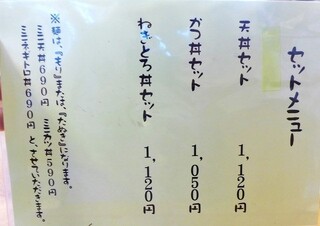 セットメニュー
天丼セット　1,120円
かつ丼セット　1,050円
ねぎとろ丼セット　1,120円
※麺は、『もり』または、『たぬき』になります。
ミニ天丼690円　ミニカツ丼590円
ミニネギトロ丼690円　と、させていただきます。